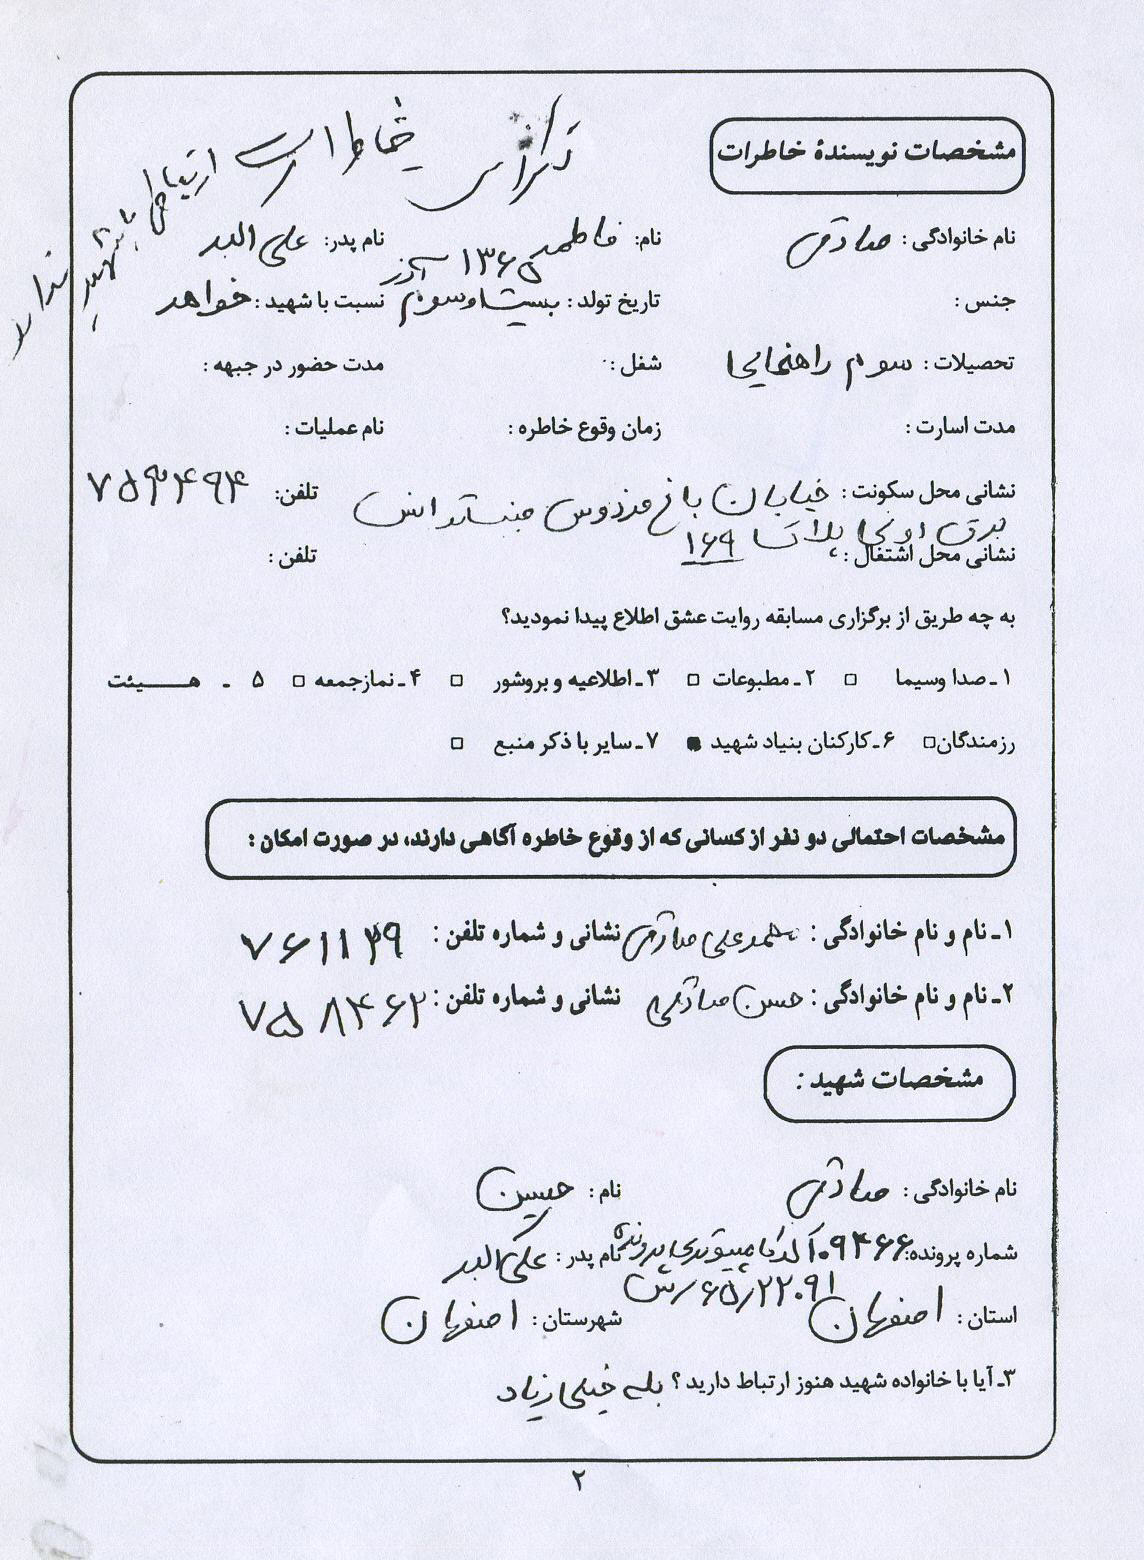 خاطرات
ارتباطی با شهید ندارد
مشخصات نویسندهٔ خاطرات
نام خانوادگی : صادقی نام: فاطمه نام پدر: علی اکبر
جنس : تاریخ تولد : بیست و سوم آذر ۱۳۶۵ نسبت با شهید : خواهر
تحصیلات : سوم راهنمایی شغل : مدت حضور در جبهه :
مدت اسارت : زمان وقوع خاطره : نام عملیات :
نشانی محل سکونت : خیابان باغ فردوس تلفن: ۷۵۳۴۹۴
برق پلاک ۱۶۹
نشانی محل اشتغال : تلفن :
به چه طریق از برگزاری مسابقه روایت عشق اطلاع پیدا نمودید؟
۱ـ صدا وسیما □ ۲ـ مطبوعات □ ۳ـ اطلاعیه و بروشور □ ۴ـ نمازجمعه □ ۵ ـ هـــیئت
رزمندگان □ ۶ـ کارکنان بنیاد شهید ■ ۷ـ سایر با ذکر منبع □
مشخصات احتمالی دو نفر از کسانی که از وقوع خاطره آگاهی دارند، در صورت امکان :
۱ـ نام و نام خانوادگی : محمدعلی صادقی نشانی و شماره تلفن : ۷۶۱۱۳۹
۲ـ نام و نام خانوادگی : حسن صادقی نشانی و شماره تلفن : ۷۵۸۴۶۲
مشخصات شهید :
نام خانوادگی : صادقی نام : حسین
شماره پرونده: کد کامپیوتری پرونده نام پدر : علی اکبر
استان : اصفهان شهرستان : اصفهان
۳ـ آیا با خانواده شهید هنوز ارتباط دارید ؟ بله خیلی زیاد
۲